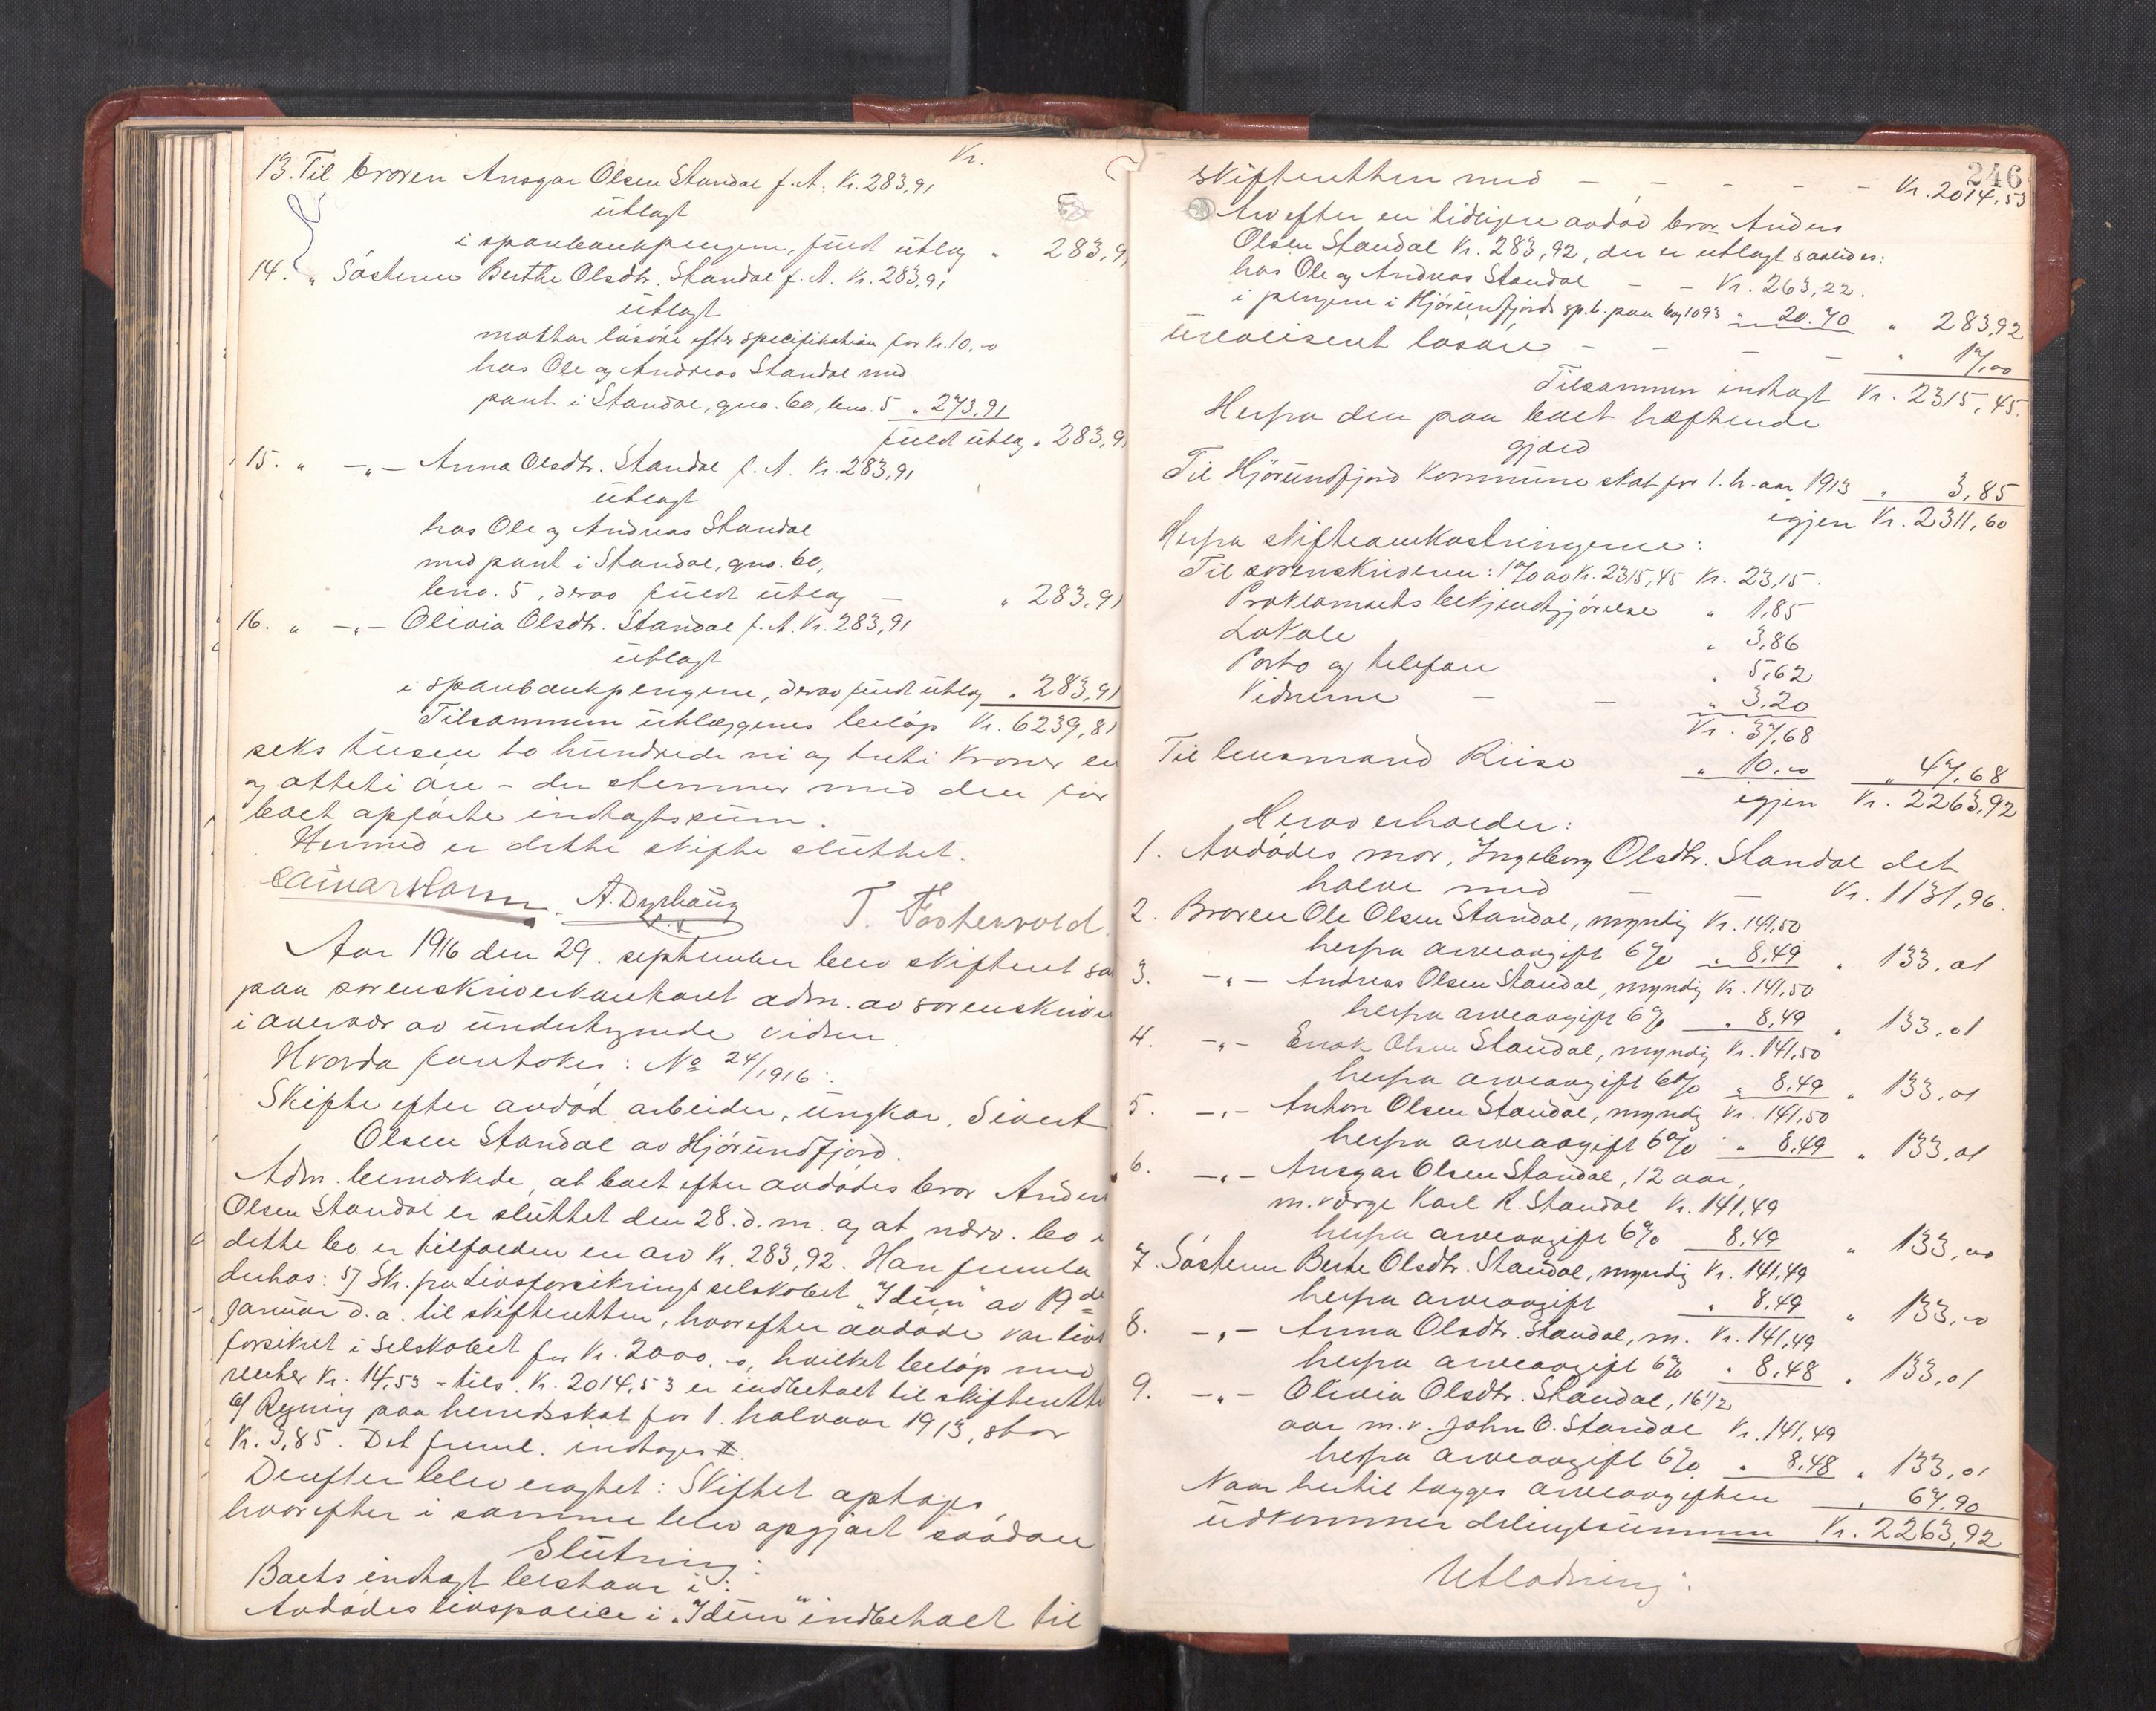 Kr.
13. Til broren Ansgar Olsen Standal f. A. Kr. 283,91
utlagt
i sparebankpengene, fuld utlæg " 283,91
14. " Søsteren Berthe Olsdtr. Standal f. A. Kr. 283,91
utlagt
mottar løsøre efter specifikation for Kr. 10,-o
hos Ole og Andreas Standal med
pant i Standal, gno. 60, bno. 5 " 273,91
fuld utlæg " 283,91
15. " -"- Anna Olsdtr. Standal f. A. Kr. 283,91
utlagt
hos Ole og Andreas Standal
med pant i Standal, gno. 60,
bno. 5, derav fuld utlæg - " 283,91
16. " -"- Olivia Olsdtr. Standal f. A. Kr. 283,91
utlagt
i sparebankpengene, derav fuld utlæg " 283,91
Tilsammen utlæggenes beløp Kr. 6239,81
seks tusen to hundrede ni og treti kroner en
og otteti øre - der stemmer med den for
boet opførte indtægtssum.
Hermed er dette skifte sluttet.
A. Dyrhaug T. Fostervold.
Aar 1916 den 29. september blev skifteret sat
paa sorenskriverkontoret adm. av sorenskrive
i overvær av undertegnede vidner.
Hvorda foretokes: No 24/1916:
Skifte efter avdød arbeider, ungkar, Sivert
Olsen Standal av Hjørundfjord.
Adm. bemerkede, at boet efter avdødes bror Anders
Olsen Standal er sluttet den 28. d. m. og at nærv. bo i
dette bo er tilfalden en arv Kr. 283,92. Han fremla
derhos: 5) Skr. fra Livsforsikringsselskabet "Idun" av 19de
januar d. a. til skifteretten, hvorefter avdøde var livs
forsikret i selskabet for Kr. 2000,-o, hvilket beløp med
renter Kr. 14,53 - tils. Kr. 2014,53 er indbetalt til skifterette
6) Regning paa herredsskat for 1. halvaar 1913, stor
Kr. 3,85. Det freml. indtages
Derefter blev eragtet: Skiftet optages
hvorefter i samme blev opgjort saadan
Slutning:
Boets indtægt bestaar i:
Avdødes livspolice i "Idun" indbetalt til
246
skifteretten med - - - - - Kr. 2014,53
Arv efter en tidligere avdød bror Anders
Olsen Standal Kr. 283,92, der er utlagt saaledes:
hos Ole og Andreas Standal - - Kr. 263,22.
i pengene i Hjørundfjords sp.b. paa bog 1093 " 20.70 " 283,92
urealisert løsøre - - - - " 17,00
Tilsammen indtægt Kr. 2315,45.
Herfra den paa boet hæftende
gjæld
Til Hjørundfjord kommune skat for 1. h.aar 1913 " 3,85
igjen Kr. 2311,60
Herfra skifteomkostningerne:
Til sorenskriveren: 1% av Kr. 2315,45 Kr. 23,15.
Proklamaets bekjendtgjørelse " 1,85
Lokale " 3,86
Porto og telefon " 5,62
Vidnerne - - " 3.20
Kr. 37,68
Til lensmand Riise " 10.-o " 47,68
igjen Kr. 2263,92
Herav erholder:
1. Avdødes mor, Ingeborg Olsdtr. Standal det
halve med - - Kr. 1131,96.
2. Broren Ole Olsen Standal, myndig Kr. 141,50
herfra arveavgift 6% " 8,49 " 133,01
3. -"- Andreas Olsen Standal, myndig Kr. 141,50
herfra arveavgift 6% " 8,49 " 133,01
4. -"- Enok Olsen Standal, myndig Kr. 141,50
herfra arveavgift 6% " 8.49 " 133,01
5. -"- Anton Olsen Standal, myndig Kr. 141,50
herfra arveavgift 6% " 8,49 " 133,01
6. -"- Ansgar Olsen Standal, 12 aar,
m. værge Karl K. Standal Kr. 141,49
herfra arveavgift 6% 8,49 " 133,00
7. Søsteren Berte Olsdtr. Standal, myndig Kr. 141,49
herfra arveavgift " 8,49 " 133,-o
8. -"- Anna Olsdtr. Standal, m. Kr. 141,49
herfra arveavgift 6% " 8,48 " 133,01
9. -"- Olivia Olsdtr. Standal, 16 1/2
aar m. v. John O. Standal Kr. 141,49
herfra arveavgift 6% " 8.48 " 133,01
Naar hertil lægges arveavgiften " 67,90
utkommer delingssummen Kr. 2263,92
Utlodning: